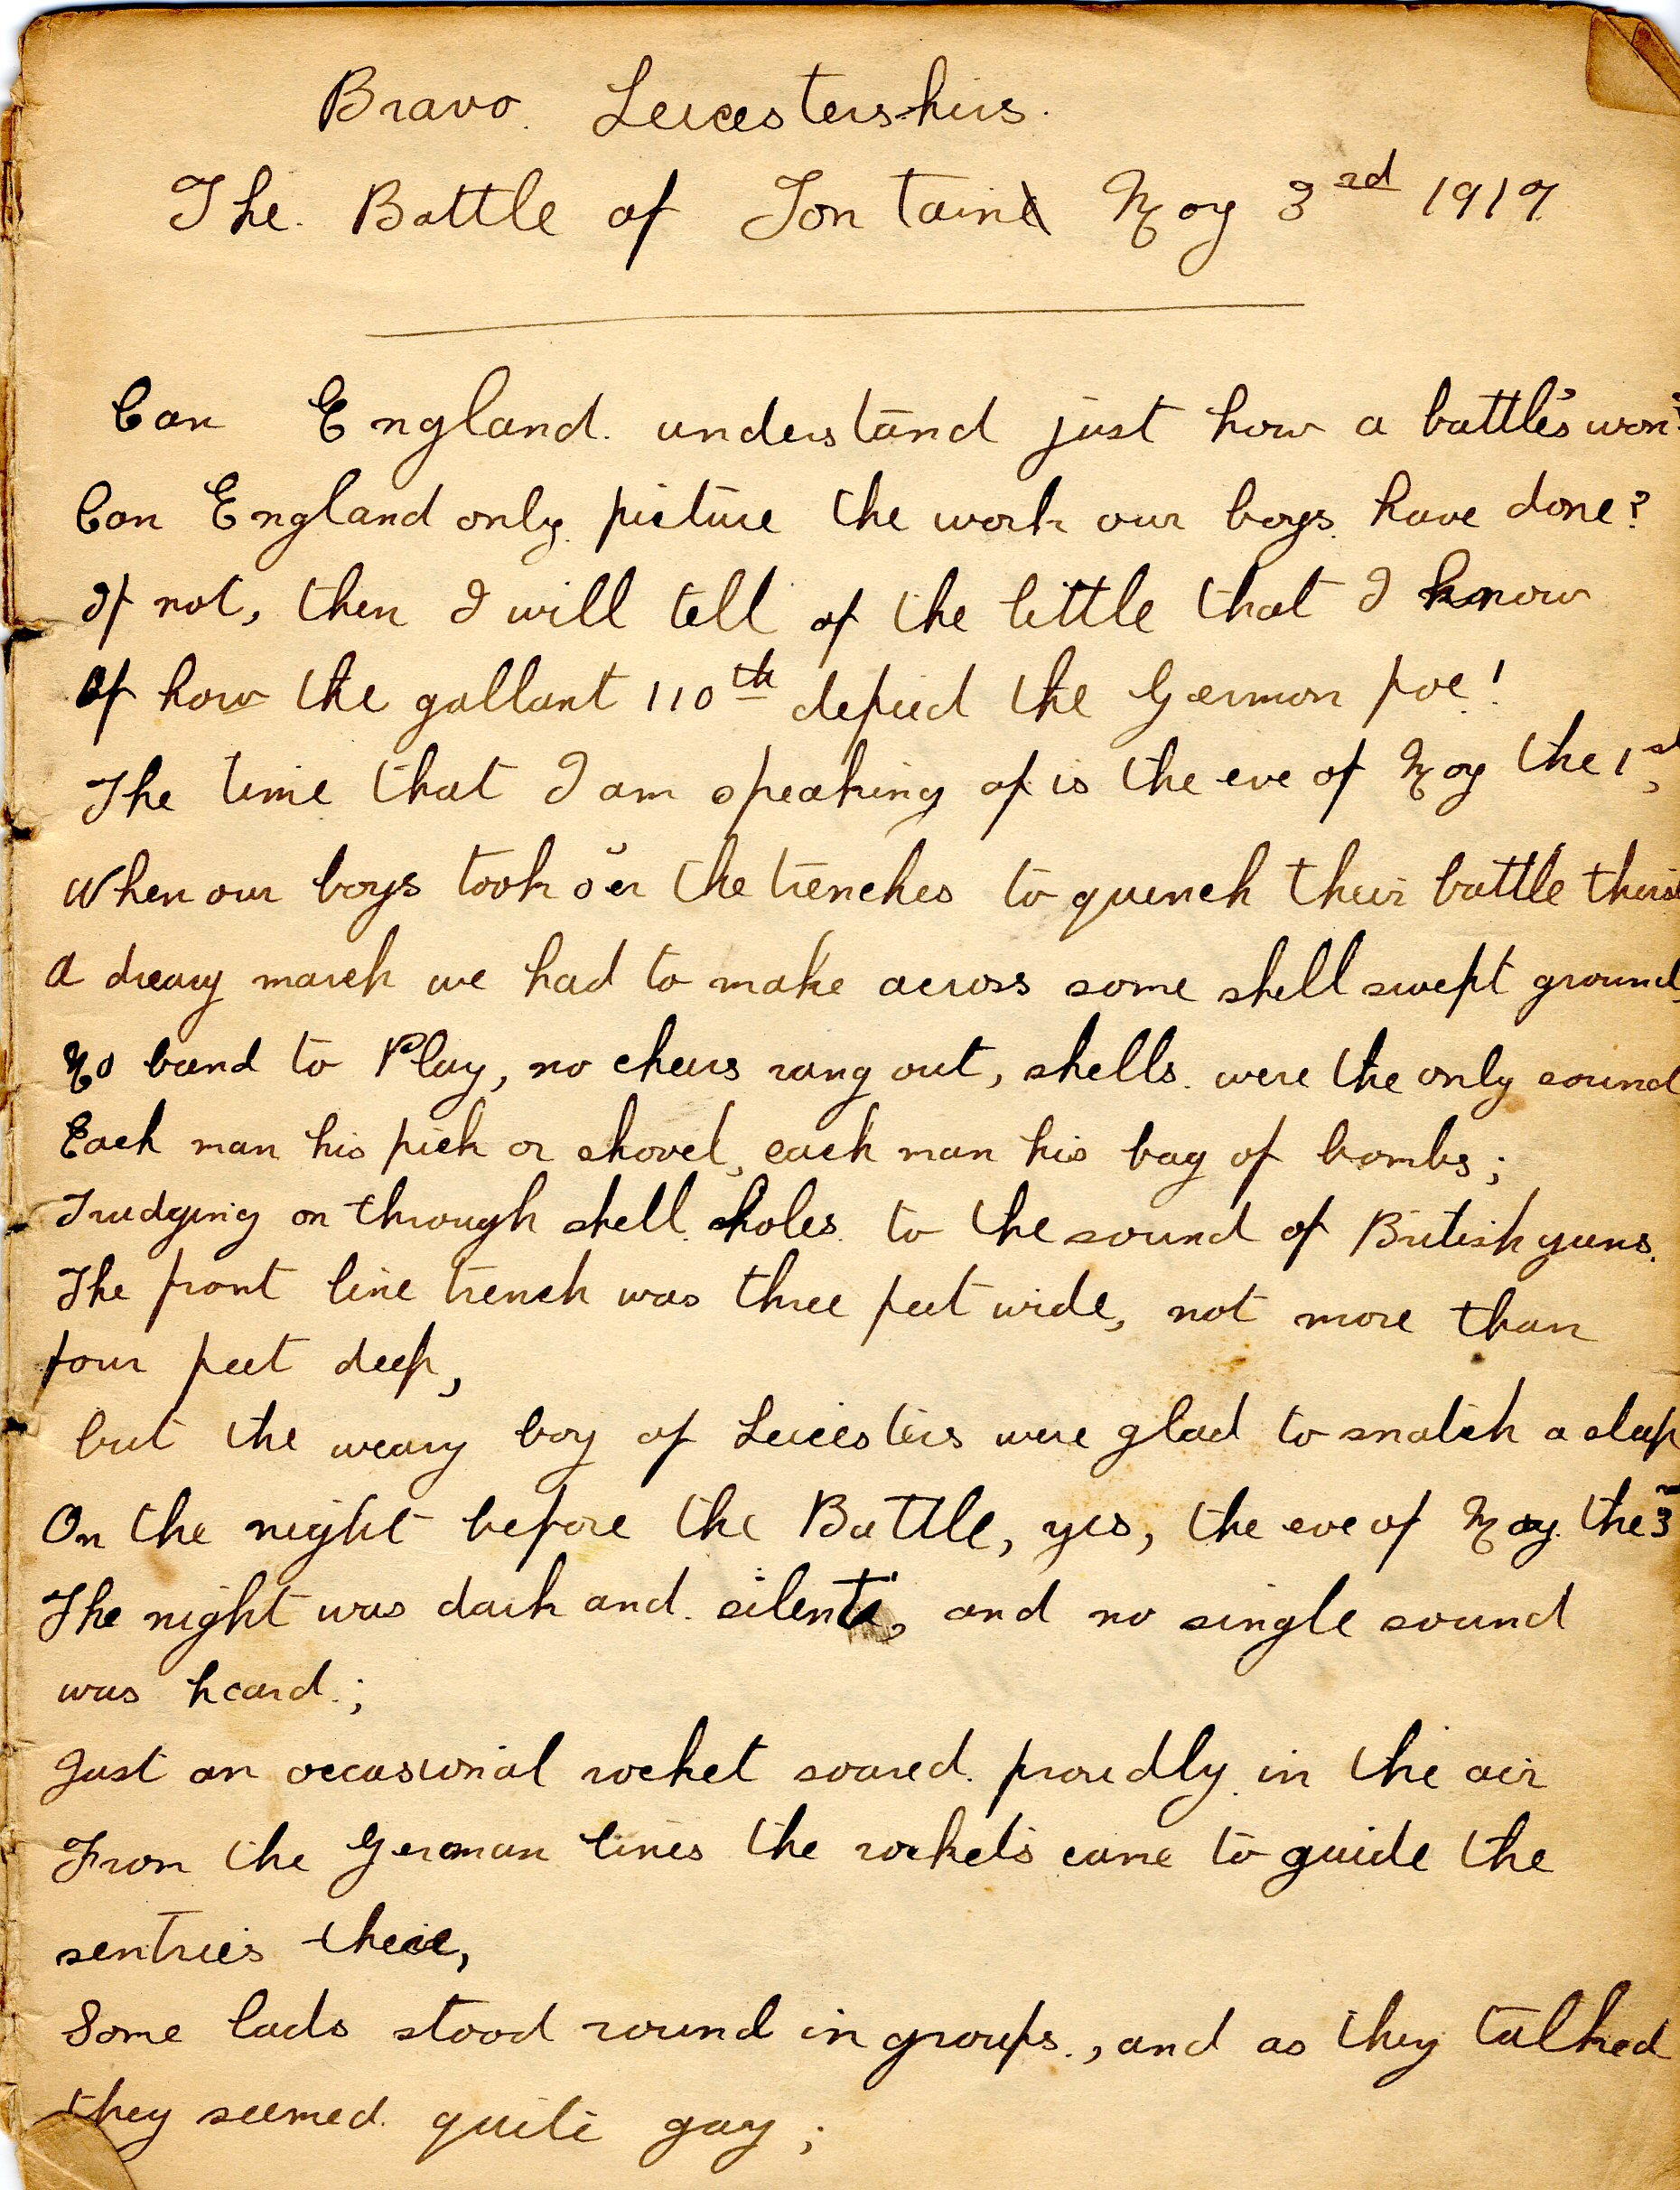 Bravo. Leicestershires.
The Battle of Fontaine May 3rd 1917
Can England understand just how a battle's won?
Can England only picture the work our boys have done?
If not, then I will tell of the little that I know
Of how the gallant 110th defied the German foe!
The time that I am speaking of is the eve of May the 1st,
When our boys took o'er the trenches to quench their battle thirst
A dreary march we had to make across some shell swept ground,
No band to Play, no cheers rang out, shells were the only sound
Each man his pick or shovel, each man his bag of bombs;
Trudging on through shell holes to the sound of British guns.
The front line trench was three feet wide, not more than
four feet deep,
but the weary boy of Leicesters were glad to snatch a sleep
On the night before the Battle, yes, the eve of May the 3
The night was dark and silent, and no single sound
was heard;
Just an occasional rocket soared proudly in the air
From the German lines the rockets came to guide the
sentries there,
Some lads stood round in groups, and as they talked
they seemed quite gay;